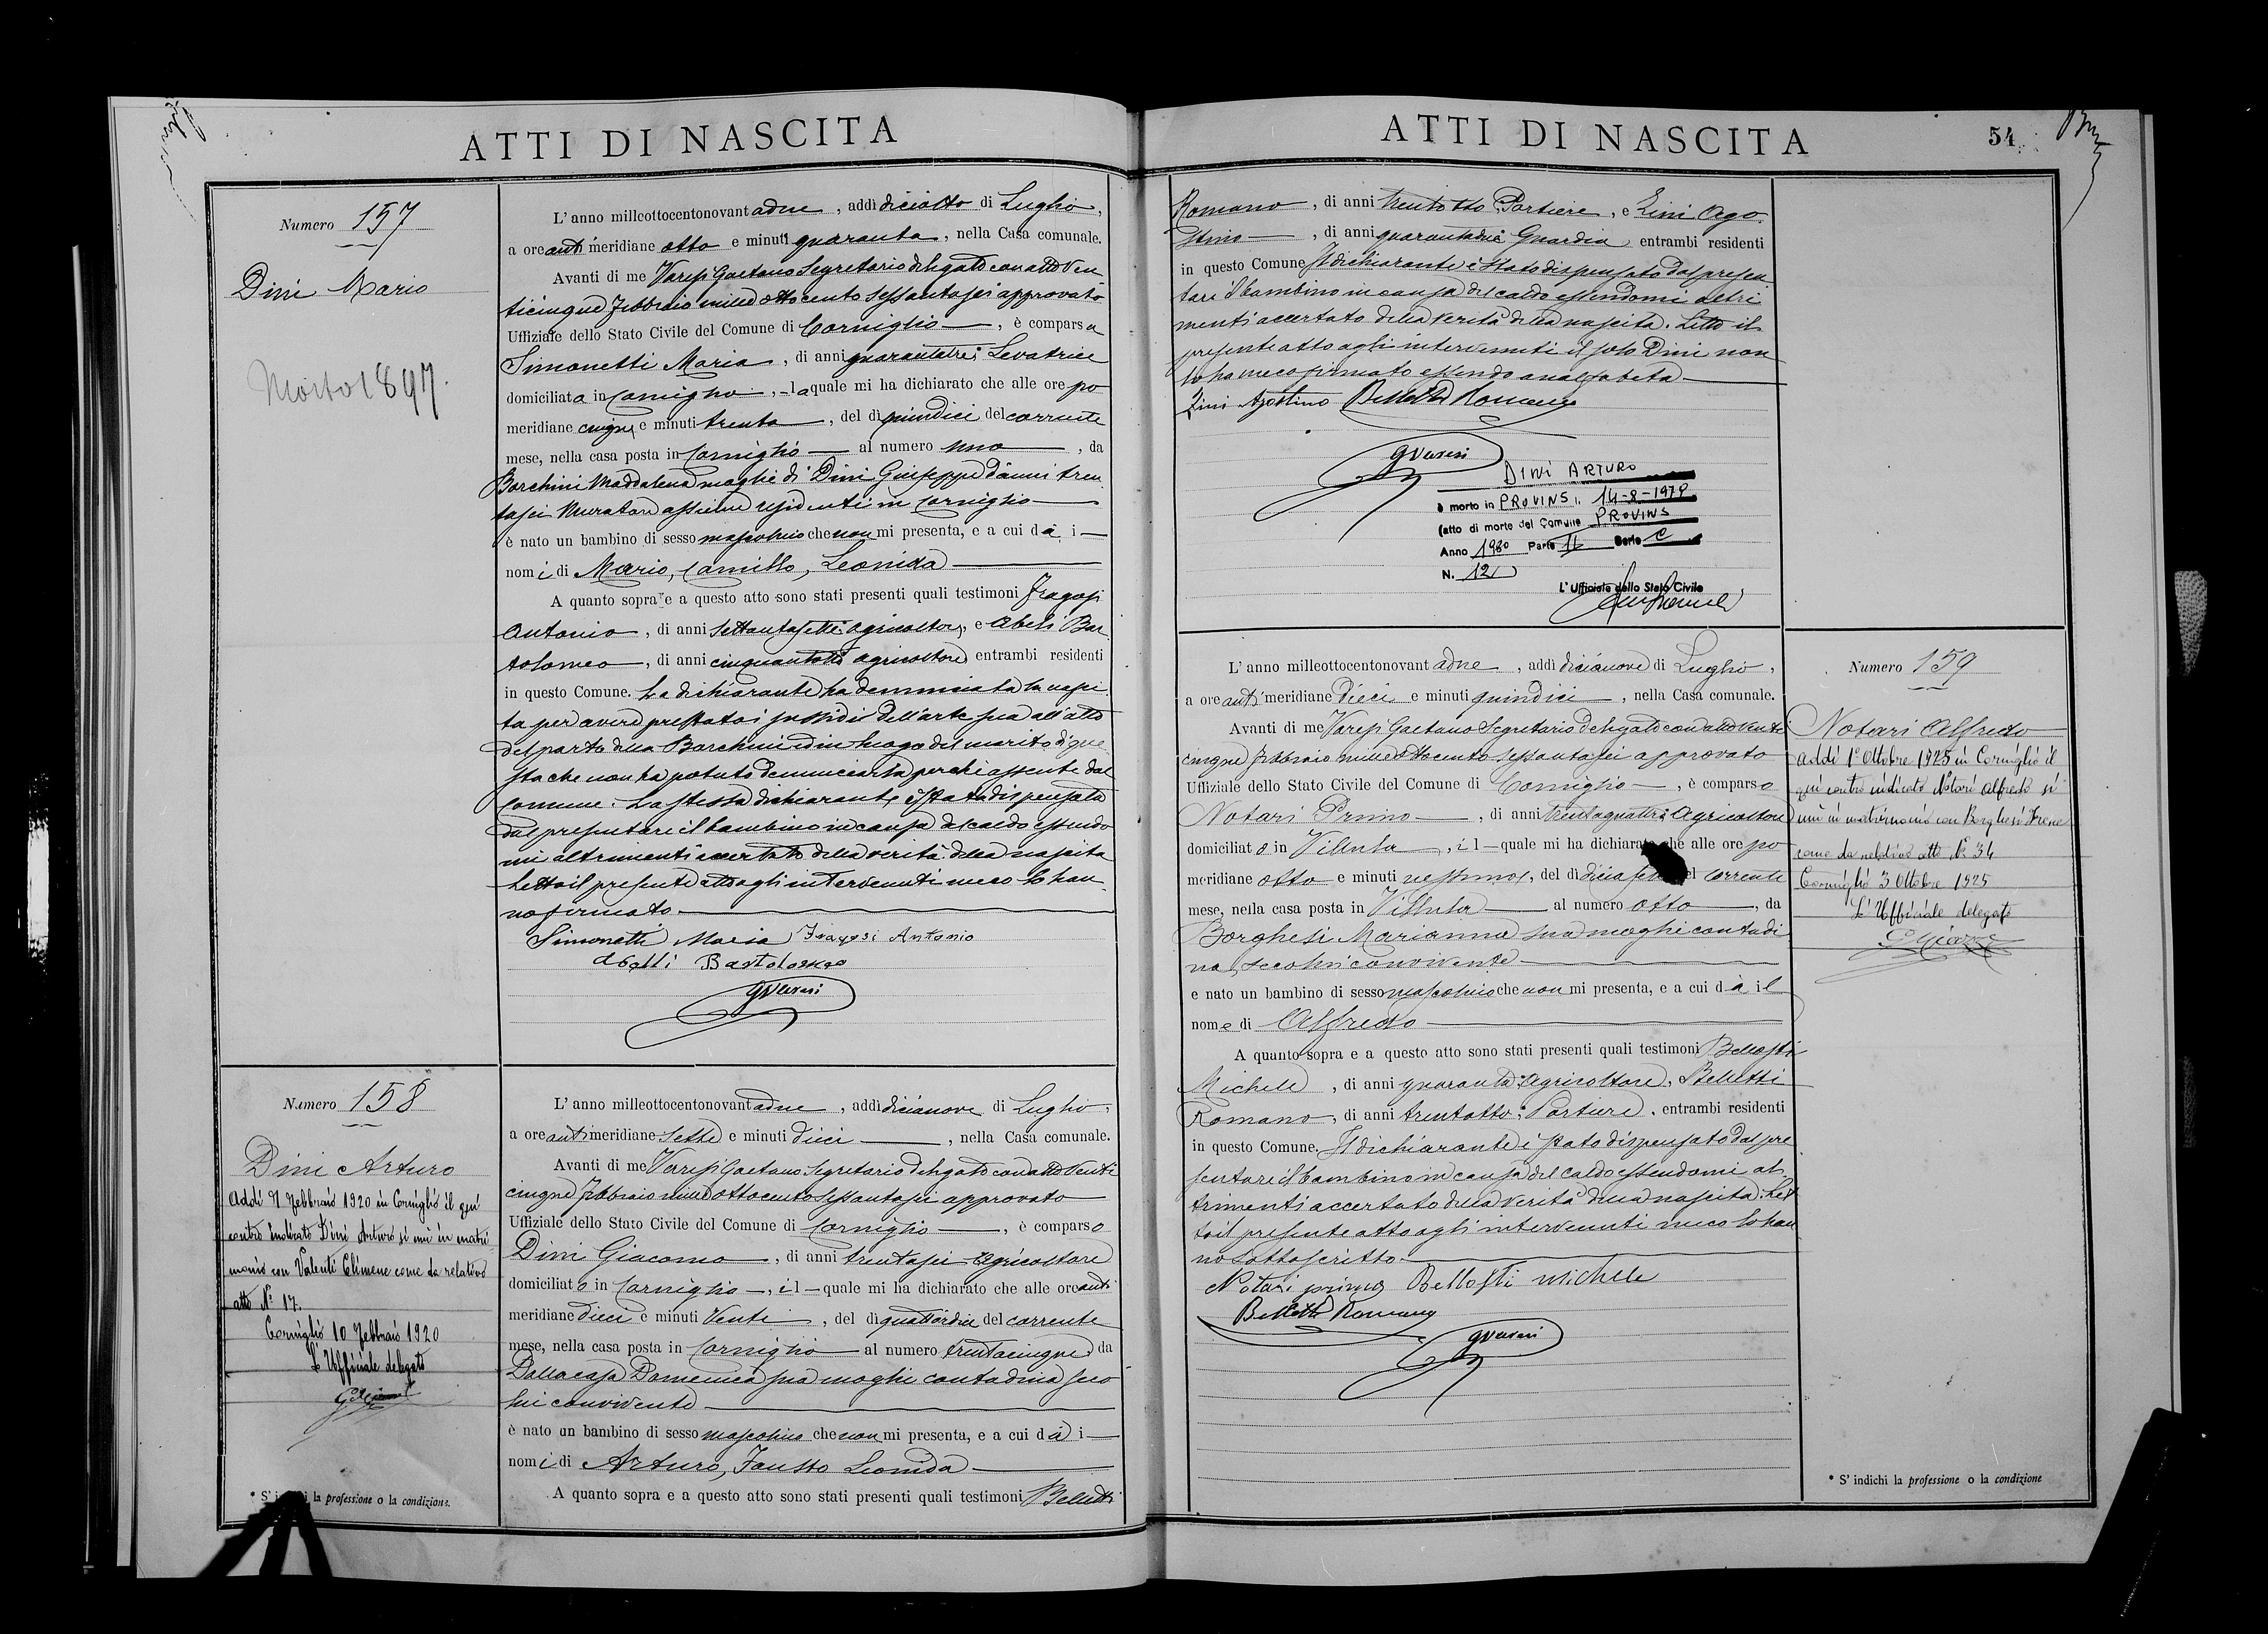 ATTI DI NASCITA
Numero 157
Dini Mario
Morto 1897.
L'anno millottocentonovantadue, addì diciotto di Luglio,
a ore antimeridiane otto e minuti quaranta, nella Casa comunale.
Avanti di me Varesi Gaetano Segretario delegato con atto ven
ticinque Febbraio mille ottocento sessantasei approvato
Uffiziale dello Stato Civile del Comune di Corniglio, è comparsa
Simonetti Maria, di anni quarantatre; Levatrice
domiciliata in Corniglio, la quale mi ha dichiarato che alle ore po
meridiane cinque e minuti trenta, del dì quindici del corrente
mese, nella casa posta in Corniglio al numero uno, da
Borchini Maddalena moglie di Dini Giuseppe d'anni tren
tasei Muratore assieme residenti in Corniglio
è nato un bambino di sesso mascolino che non mi presenta, e a cui dà i
nomi di Mario, Camillo, Leonida
A quanto sopra e a questo atto sono stati presenti quali testimoni Fragasi
Antonio, di anni settantasette agricoltore, e Abeli Bar
tolomeo, di anni agricoltore entrambi residenti
in questo Comune. La dichiarante ha denunciata la nasci
ta per avere prestato i sussidi dell'arte sua all'atto
del parto della Borchini ed in luogo del marito di que
sta che non ha potuto denunciarla perchè assente dal
Comune. La stessa dichiarante è stata dispensata
dal presentare il bambino in causa del caldo essendo
mi altrimenti accertato della verità della nascita
Letto il presente atto agli intervenuti meco lo han
no firmato
Simonetti Maria Fragasi Antonio
Abelli Bartolomeo
GVaresi
Numero 158
Dini Arturo
Addì 7 Febbraio 1920 in Corniglio il qui
contro indicato Dini Arturo si unì in matri
monio con Valenti Climene come da relativo
atto N° 17.
Corniglio 10 Febbraio 1920
L'Ufficiale delegato
L'anno millottocentonovantadue, addì diecianove di Luglio,
a ore antimeridiane sette e minuti dieci, nella Casa comunale.
Avanti di me Varesi Gaetano Segretario delegato con atto venti
cinque Febbraio mille ottocento sessantasei approvato
Uffiziale dello Stato Civile del Comune di Corniglio, è comparso
Dini Giacomo, di anni trentasei Agricoltore
domiciliato in Corniglio, il quale mi ha dichiarato che alle ore anti
meridiane dieci e minuti venti, del dì quattordici del corrente
mese, nella casa posta in Corniglio al numero trentacinque da
Dallacasa Domenica sua moglie contadina seco
lui convivente
è nato un bambino di sesso mascolino che non mi presenta, e a cui dà i
nomi di Arturo, Fausto Leonida
A quanto sopra e a questo atto sono stati presenti quali testimoni Belletti
* S' indichi la professione o la condizione.
ATTI DI NASCITA
54
Romano, di anni trentotto Portiere, e Zini Ago
stino, di anni quarantadue Guardia entrambi residenti
in questo Comune Il dichiarante è stato dispensato dal presen
tare il bambino in causa del caldo essendomi altri
menti accertato della verità della nascita. Letto il
presente atto agli intervenuti il solo Dini non
lo ha meco firmato essendo analfabeta
Zini Agostino Belletti Romano
GVaresi
DINI ARTURO
è morto in PROVINS il 14-8-1979
(atto di morte del Comune PROVINS
Anno 1980 Parte II Serie C
N. 12)
L'Ufficiale dello Stato Civile
L'anno millottocentonovantadue, addì diecianove di Luglio,
a ore antimeridiane dieci e minuti quindici, nella Casa comunale.
Avanti di me Varesi Gaetano Segretario delegato con atto venti
cinque Febbraio mille ottocento sessantasei approvato
Uffiziale dello Stato Civile del Comune di Corniglio, è comparso
Notari Primo, di anni trentaquattro; Agricoltore
domiciliato in Villula, il quale mi ha dichiarato che alle ore po
meridiane otto e minuti nessuno, del dì del corrente
mese, nella casa posta in Villula al numero otto, da
Borghesi Marianna sua moglie contadi
na, seco lui convivente
è nato un bambino di sesso mascolino che non mi presenta, e a cui dà il
nome di Alfredo
A quanto sopra e a questo atto sono stati presenti quali testimoni Bellosti
Michele, di anni quaranta; Agricoltore, Belletti
Romano, di anni trentotto; Portiere, entrambi residenti
in questo Comune. Il dichiarante è stato dispensato dal pre
sentare il bambino in causa del caldo essendomi al
trimenti accertato della verità della nascita. Let
to il presente atto agli intervenuti meco lo han
no sottoscritto
Notari primo Bellosti Michele
Belletti Romano
GVaresi
Numero 159
Notari Alfredo
Addì 1° Ottobre 1925 in Corniglio il
qui contro indicato Notari Alfredo si
unì in matrimonio con Borghesi Irene
come da relativo atto N° 34
Corniglio 3 Ottobre 1925
L'Ufficiale delegato
* S' indichi la professione o la condizione